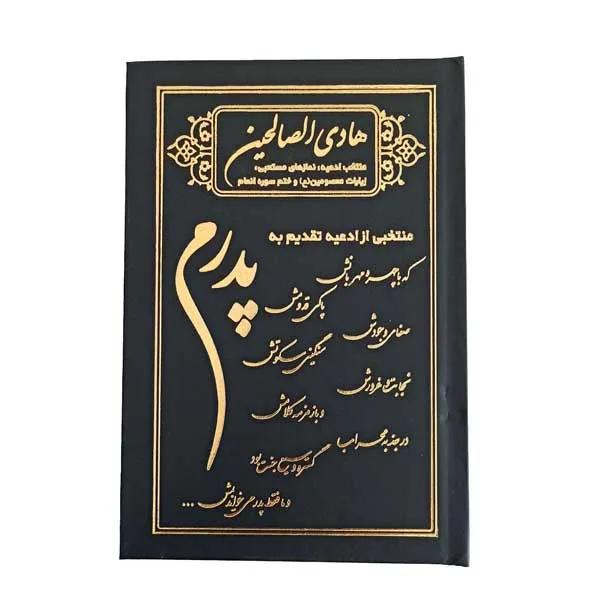 هادی الصالحین
منتخب ادعیه، نمازهای مستحبی،
زیارات معصومین(ع) و ختم سوره انعام
منتخبی از ادعیه تقدیم به
پدرم
که با چهره مهربانش
پاکی قدومش
صفای وجودش
سنگینی سکوتش
نجابت و غرورش
و باز مزمه کلامش
در جذبه محرابها
گستره وسیع جنت بود
و ما فقط پدر می خواندیمش ...